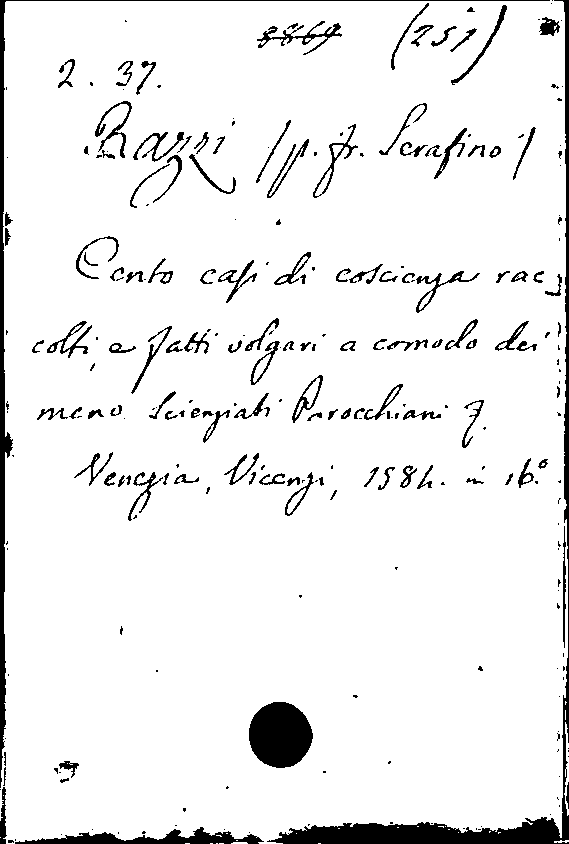 8869 (251)
2. 37.
Razzi (p. fr. Serafino)
Cento casi di coscienza rac
colti, e fatti volgari a comodo dei
meno scienziati Parocchiani
Venezia, Vicenzi, 1584. in 16.º